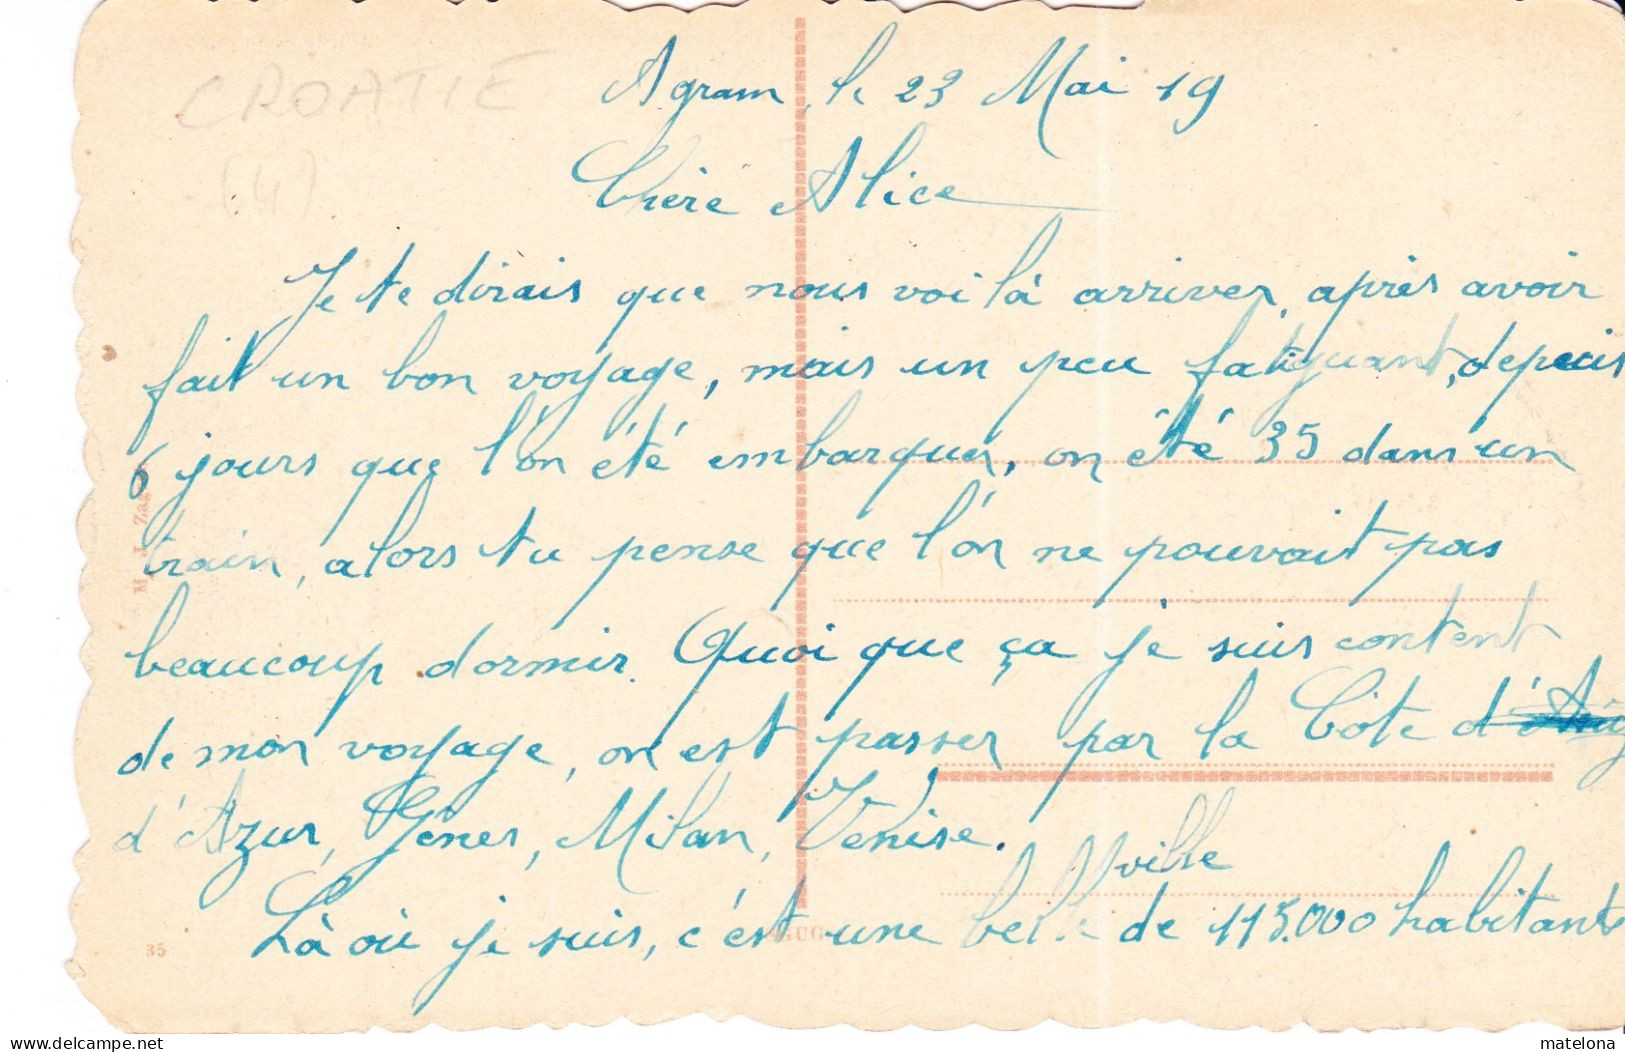 CROATIE
(4)
Agram, le 23 Mai 19
Chère Alice
Je te dirais que nous voilà arriver, après avoir
fait un bon voyage, mais un peu fatiguant, depuis
6 jours que l'on été embarquer, on été 35 dans un
train, alors tu pense que l'on ne pouvait pas
beaucoup dormir. Quoi que ça je suis content
de mon voyage, on est passer par la Côte
d'Azur, Gênes, Milan, Venise.
ville
Là où je suis, c'est une belle de 115.000 habitants
35
delcampe.net
matelona